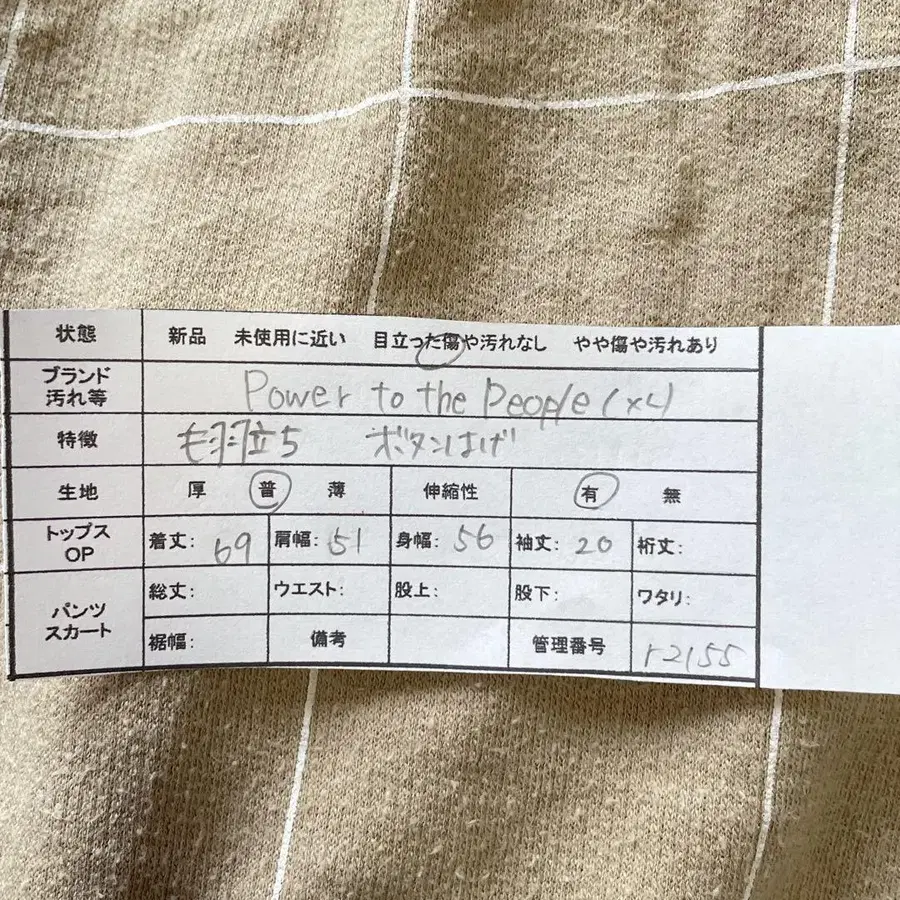 状態 新品 未使用に近い 目立った傷や汚れなし やや傷や汚れあり
ブランド 汚れ等 Power to the People (XL)
特徴 毛羽立ち ボタンはげ
生地 厚 普 薄 伸縮性 有 無
トップス OP 着丈: 69 肩幅: 51 身幅: 56 袖丈: 20 裄丈:
パンツ スカート 総丈: ウエスト: 股上: 股下: ワタリ:
裾幅: 備考 管理番号 r2155